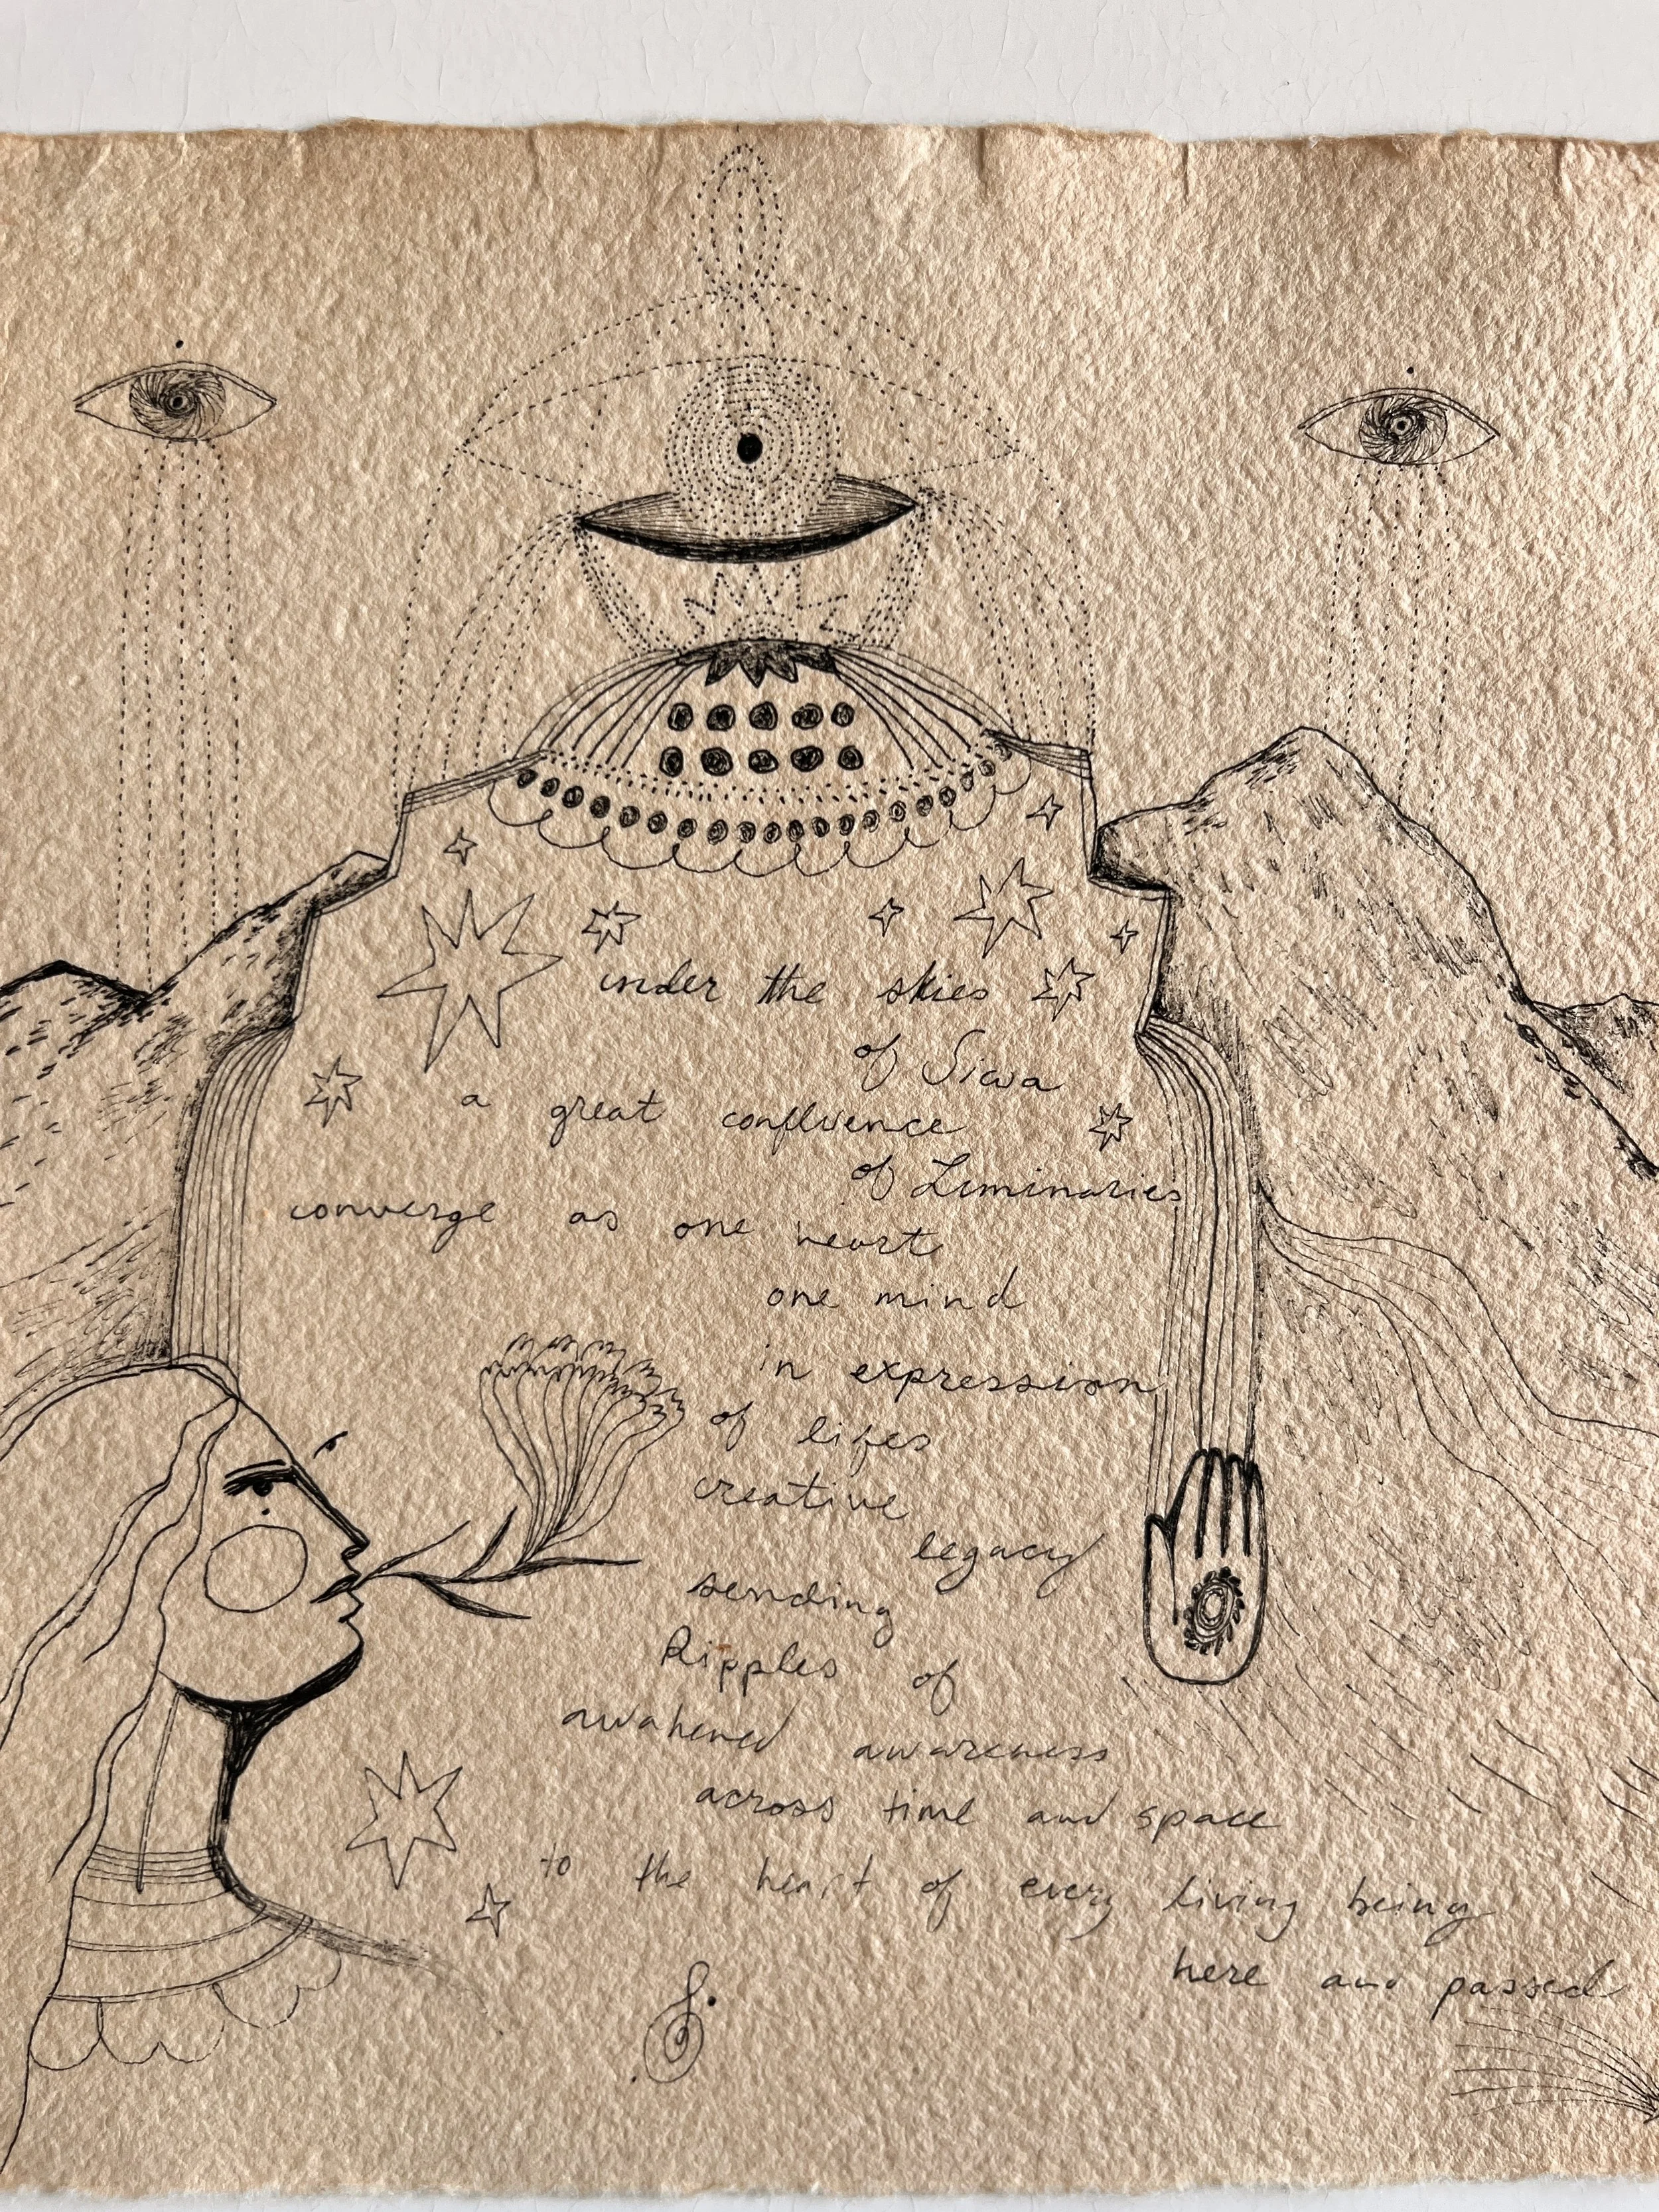 under the skies
of Siwa
a great confluence
of Luminaries
converge as one heart
one mind
in expression
of lifes
creative
legacy
sending
Ripples of
awakened awareness
across time and space
to the heart of every living being
here and passed